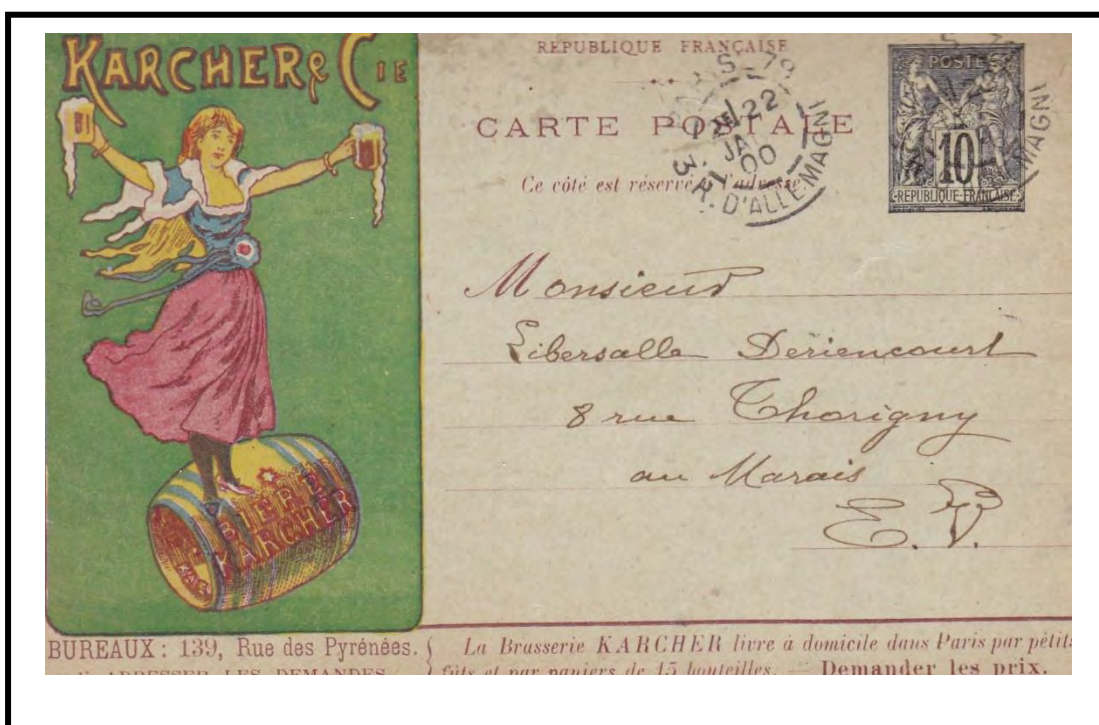 KARCHER & CIE
BIERE
KARCHER
REPUBLIQUE FRANÇAISE
CARTE POSTALE
Ce côté est réservé à l'adresse
PARIS_79
22
JA
00
R. D'ALLEMAGN
POSTES
10
REPUBLIQUE FRANÇAISE
Monsieur
Libersalle Deriencourt
8 rue Thorigny
au Marais
E. V.
BUREAUX : 139, Rue des Pyrénées.
ADRESSER LES DEMANDES
La Brasserie KARCHER livre à domicile dans Paris par pétits
fûts et par paniers de 15 bouteilles. — Demander les prix.